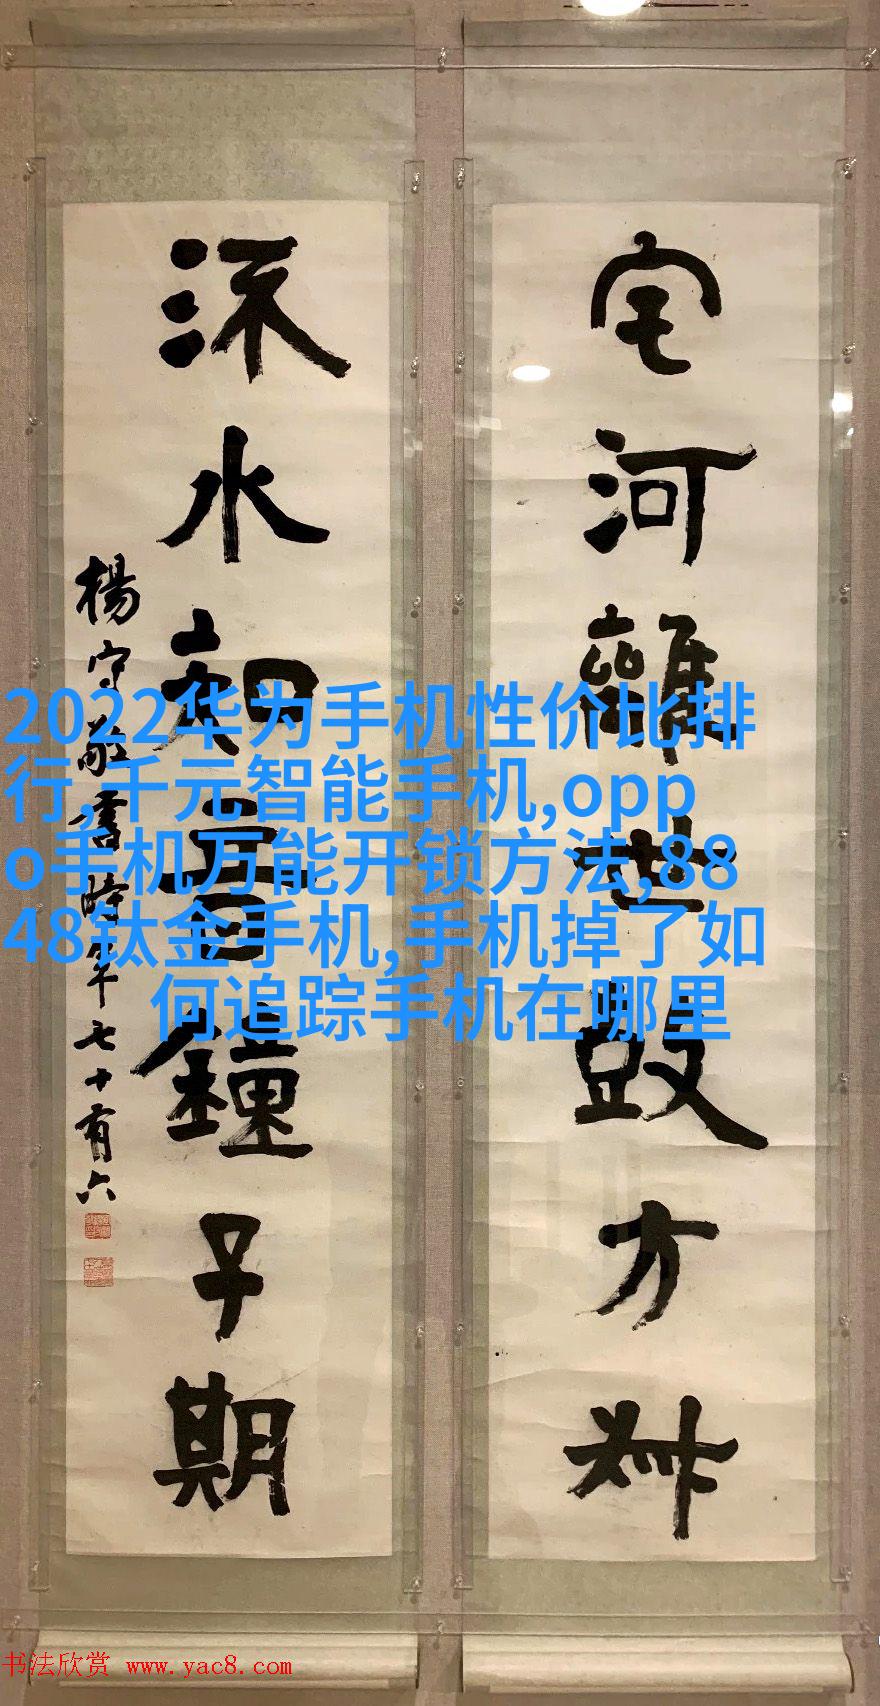 宅河離世方
流水知音鐘子期
楊守敬書時年七十有六
2022华为手机性价比排
行,千元智能手机,opp
o手机万能开锁方法,88
48钛金手机,手机掉了如
何追踪手机在哪里
书法欣赏 www.yac8.com